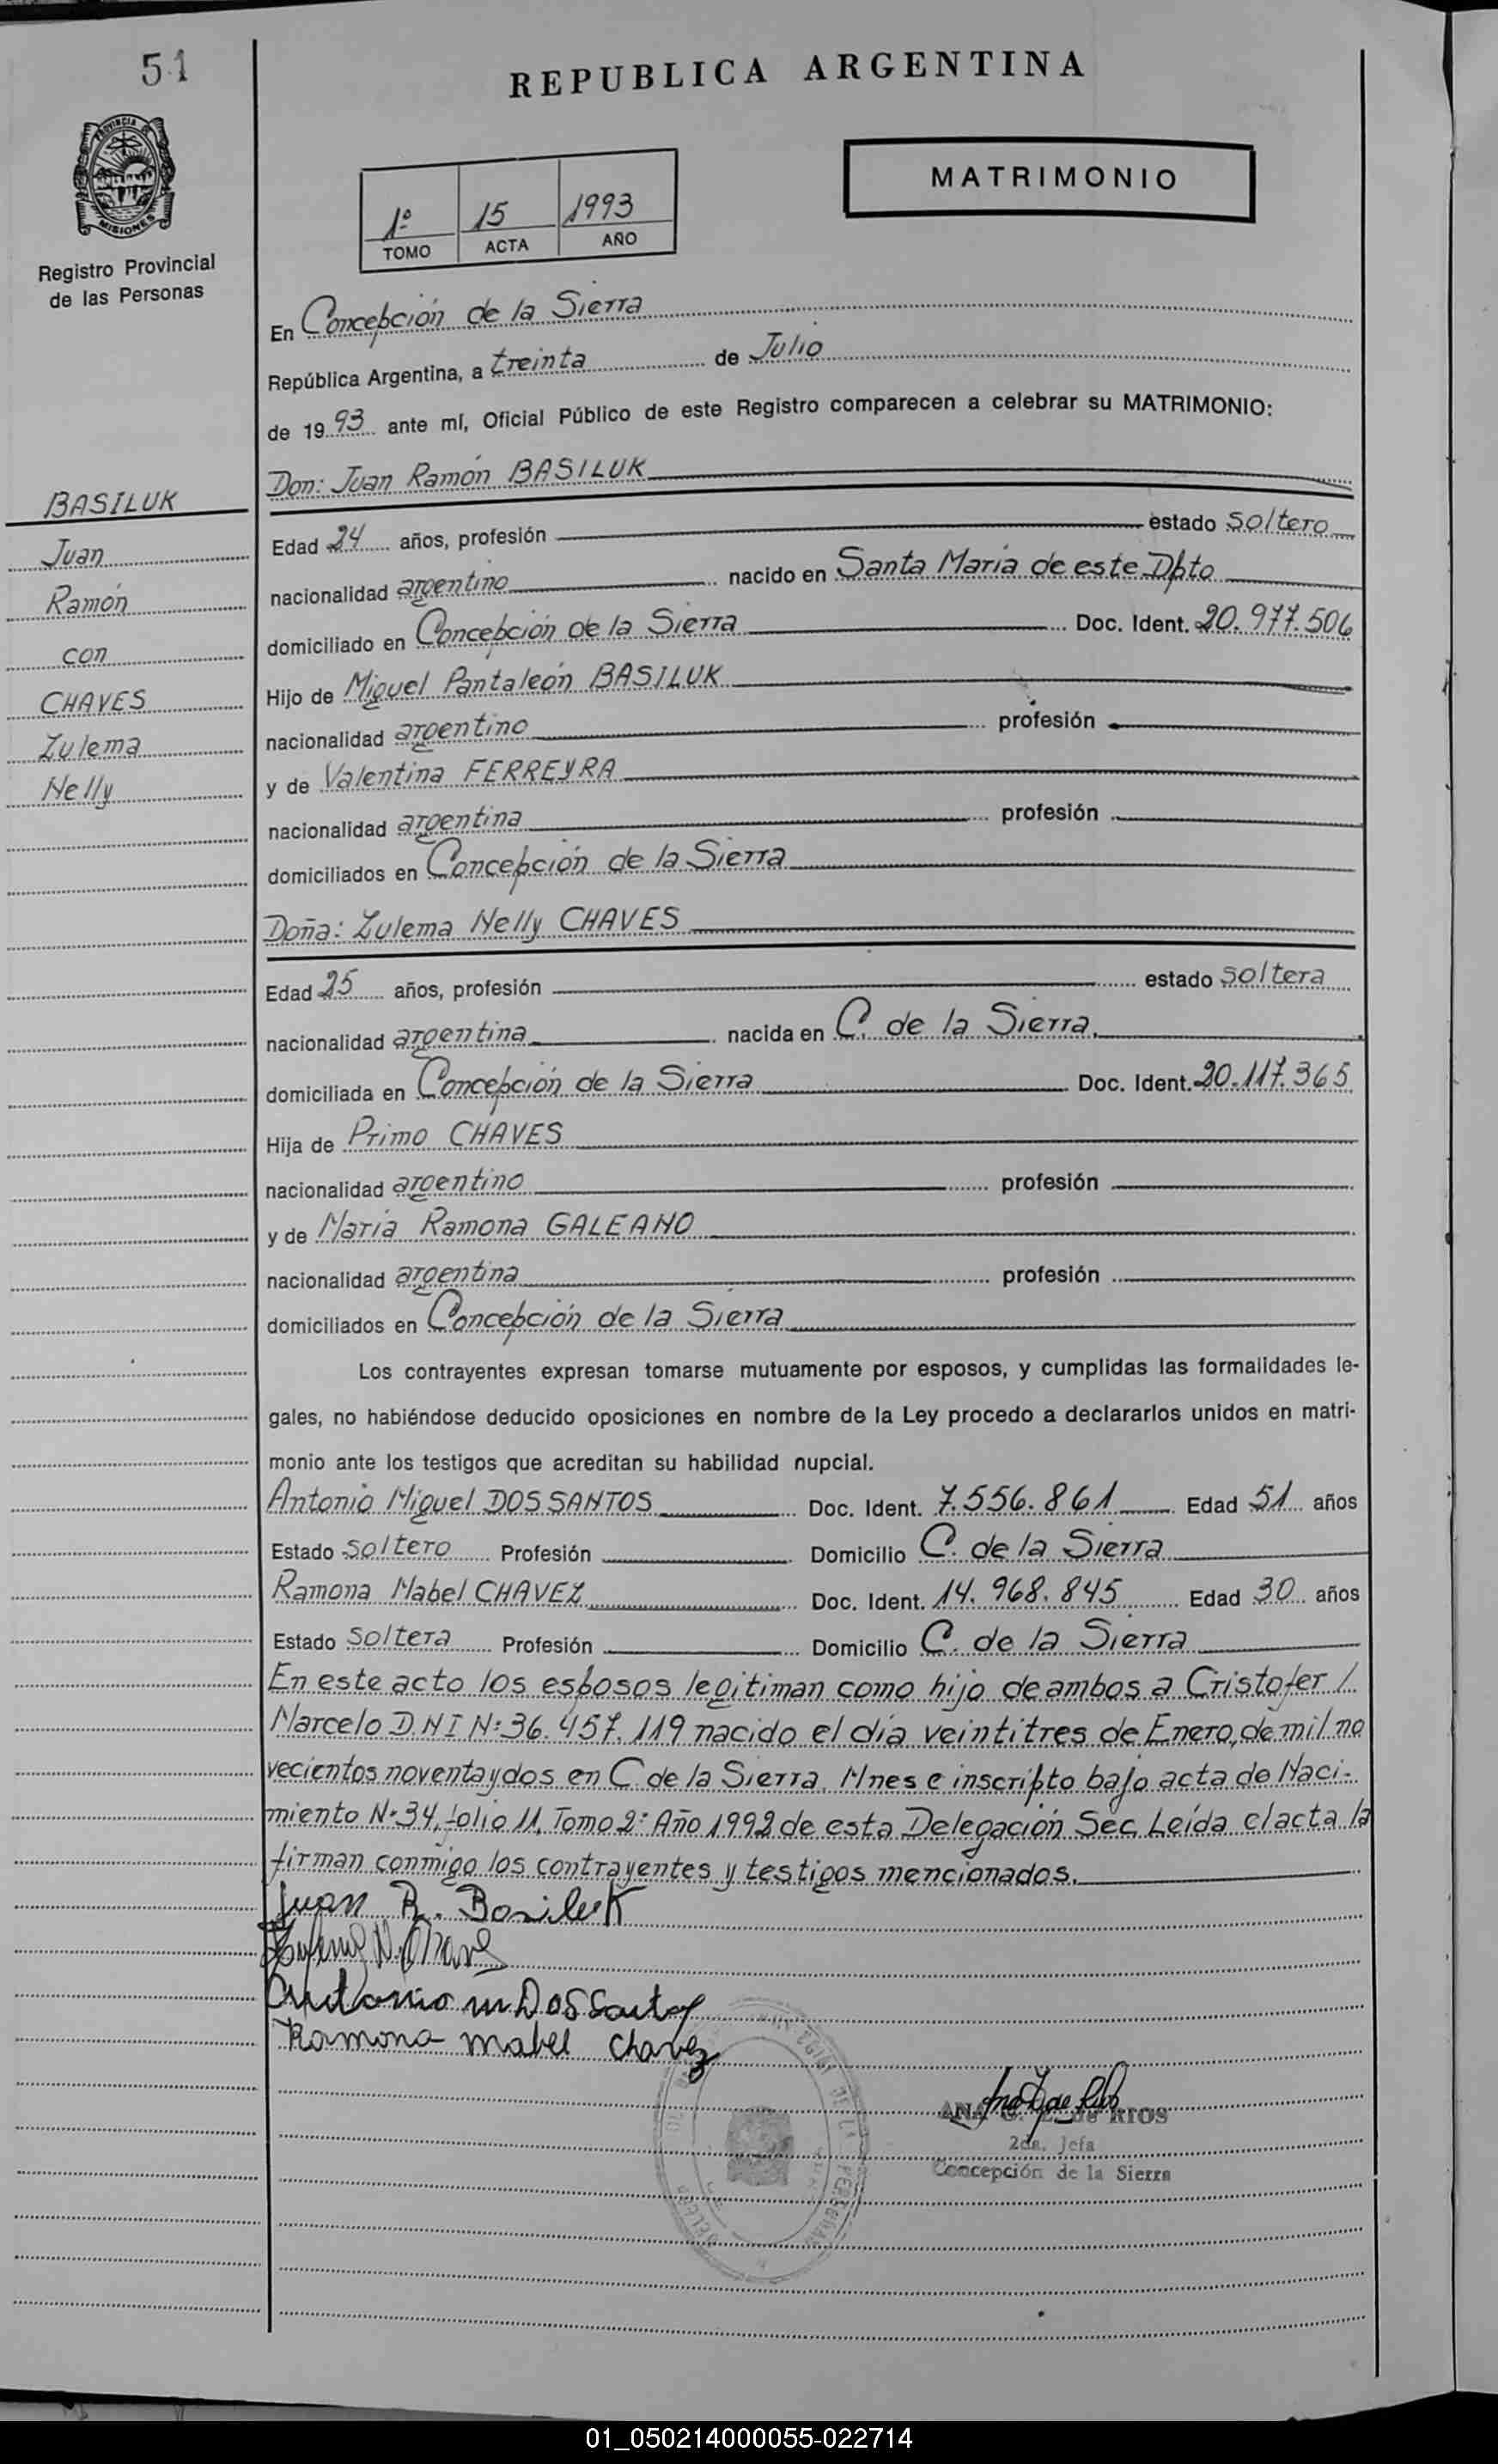 51
REPUBLICA ARGENTINA
PROVINCIA DE
MISIONES
Registro Provincial
de las Personas
1º 15 1993
TOMO ACTA AÑO
MATRIMONIO
En Concepción de la Sierra
República Argentina, a treinta de Julio
de 1993 ante mí, Oficial Público de este Registro comparecen a celebrar su MATRIMONIO:
Don: Juan Ramón BASILUK
BASILUK
Juan
Ramón
con
CHAVES
Zulema
Nelly
Edad 24 años, profesión estado soltero
nacionalidad argentino nacido en Santa María de este Dpto
domiciliado en Concepción de la Sierra Doc. Ident. 20.977.506
Hijo de Miguel Pantaleón BASILUK
nacionalidad argentino profesión
y de Valentina FERREYRA
nacionalidad argentina profesión
domiciliados en Concepción de la Sierra
Doña: Zulema Nelly CHAVES
Edad 25 años, profesión estado soltera
nacionalidad argentina nacida en C. de la Sierra.
domiciliada en Concepción de la Sierra Doc. Ident. 20.117.365
Hija de Primo CHAVES
nacionalidad argentino profesión
y de María Ramona GALEANO
nacionalidad argentina profesión
domiciliados en Concepción de la Sierra
Los contrayentes expresan tomarse mutuamente por esposos, y cumplidas las formalidades le-
gales, no habiéndose deducido oposiciones en nombre de la Ley procedo a declararlos unidos en matri-
monio ante los testigos que acreditan su habilidad nupcial.
Antonio Miguel DOS SANTOS Doc. Ident. 7.556.861 Edad 51 años
Estado soltero Profesión Domicilio C. de la Sierra
Ramona Mabel CHAVEZ Doc. Ident. 14.968.845 Edad 30 años
Estado soltera Profesión Domicilio C. de la Sierra
En este acto los esposos legitiman como hijo de ambos a Cristofer /
Marcelo D.N I Nº 36.457.119 nacido el día veintitres de Enero, de mil no
vecientos noventa y dos en C. de la Sierra, Mnes e inscripto bajo acta de Naci-
miento Nº 34, folio 11, Tomo 2º Año 1992 de esta Delegación Sec. Leída el acta la
firman conmigo los contrayentes y testigos mencionados.
Juan R. Basiluk
Zulema N. Chaves
Antonio M Dos Santos
Ramona Mabel Chavez
ANA de RIOS
2da. Jefa
Concepción de la Sierra
01_050214000055-022714